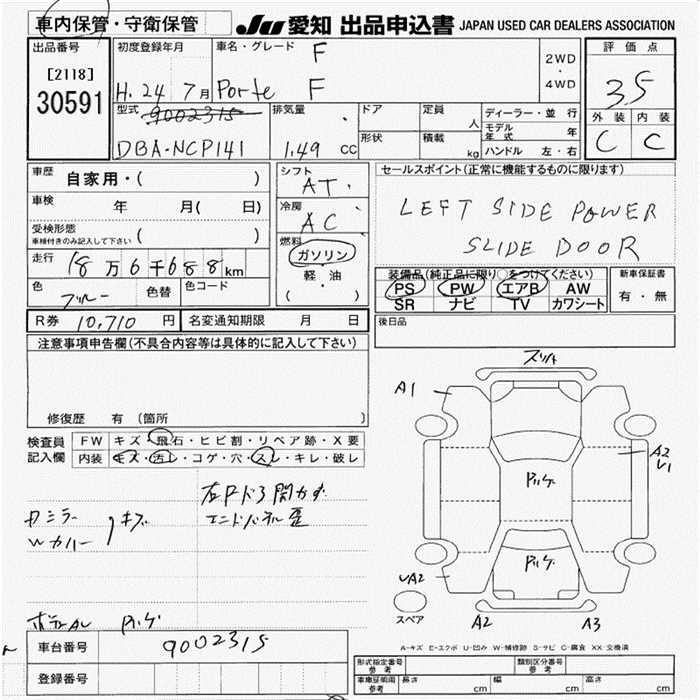 車内保管・守衛保管
JU 愛知 出品申込書 JAPAN USED CAR DEALERS ASSOCIATION
出品番号
[2118]
30591
初度登録年月
H.24 7月
車名・グレード F
Porte F
2WD
・
4WD
評価点
3.5
外装 内装
C C
型式 9002315
DBA-NCP141
排気量
1.49 cc
ドア
形状
定員 人
積載 kg
ディーラー・並行
モデル年式 年
ハンドル 左・右
車歴 自家用・( )
車検 年 月( 日)
受検形態
車検付きのみ記入して下さい ( )
走行 18万6千688km
色 ブルー 色替 色コード
シフト
AT
冷房
AC
燃料
ガソリン
軽・油
( )
セールスポイント(正常に機能するものに限ります)
LEFT SIDE POWER
SLIDE DOOR
装備品(純正品に限り○をつけてください)
PS PW エアB AW
SR ナビ TV カワシート
新車保証書
有・無
R券 10,710 円 名変通知期限 月 日
後日品
注意事項申告欄(不具合内容等は具体的に記入して下さい)
修復歴 有 (箇所 )
検査員
記入欄
FW キズ・飛石・ヒビ割・リペア跡・X要
内装 キズ・汚レ・コゲ・穴・スレ・キレ・破レ
左Pドろ開かず
エンドパネル歪
Wカバー
キズ
スリキ
A1
A2
A2
A3
スペア
A-キズ E-エクボ U-凹み W-補修跡 S-サビ C-腐食 XX-交換済
車台番号 9002315
登録番号
形式指定番号
参考
類別区分番号
参考
車庫証明用
参考
長さ cm 幅 cm 高さ cm